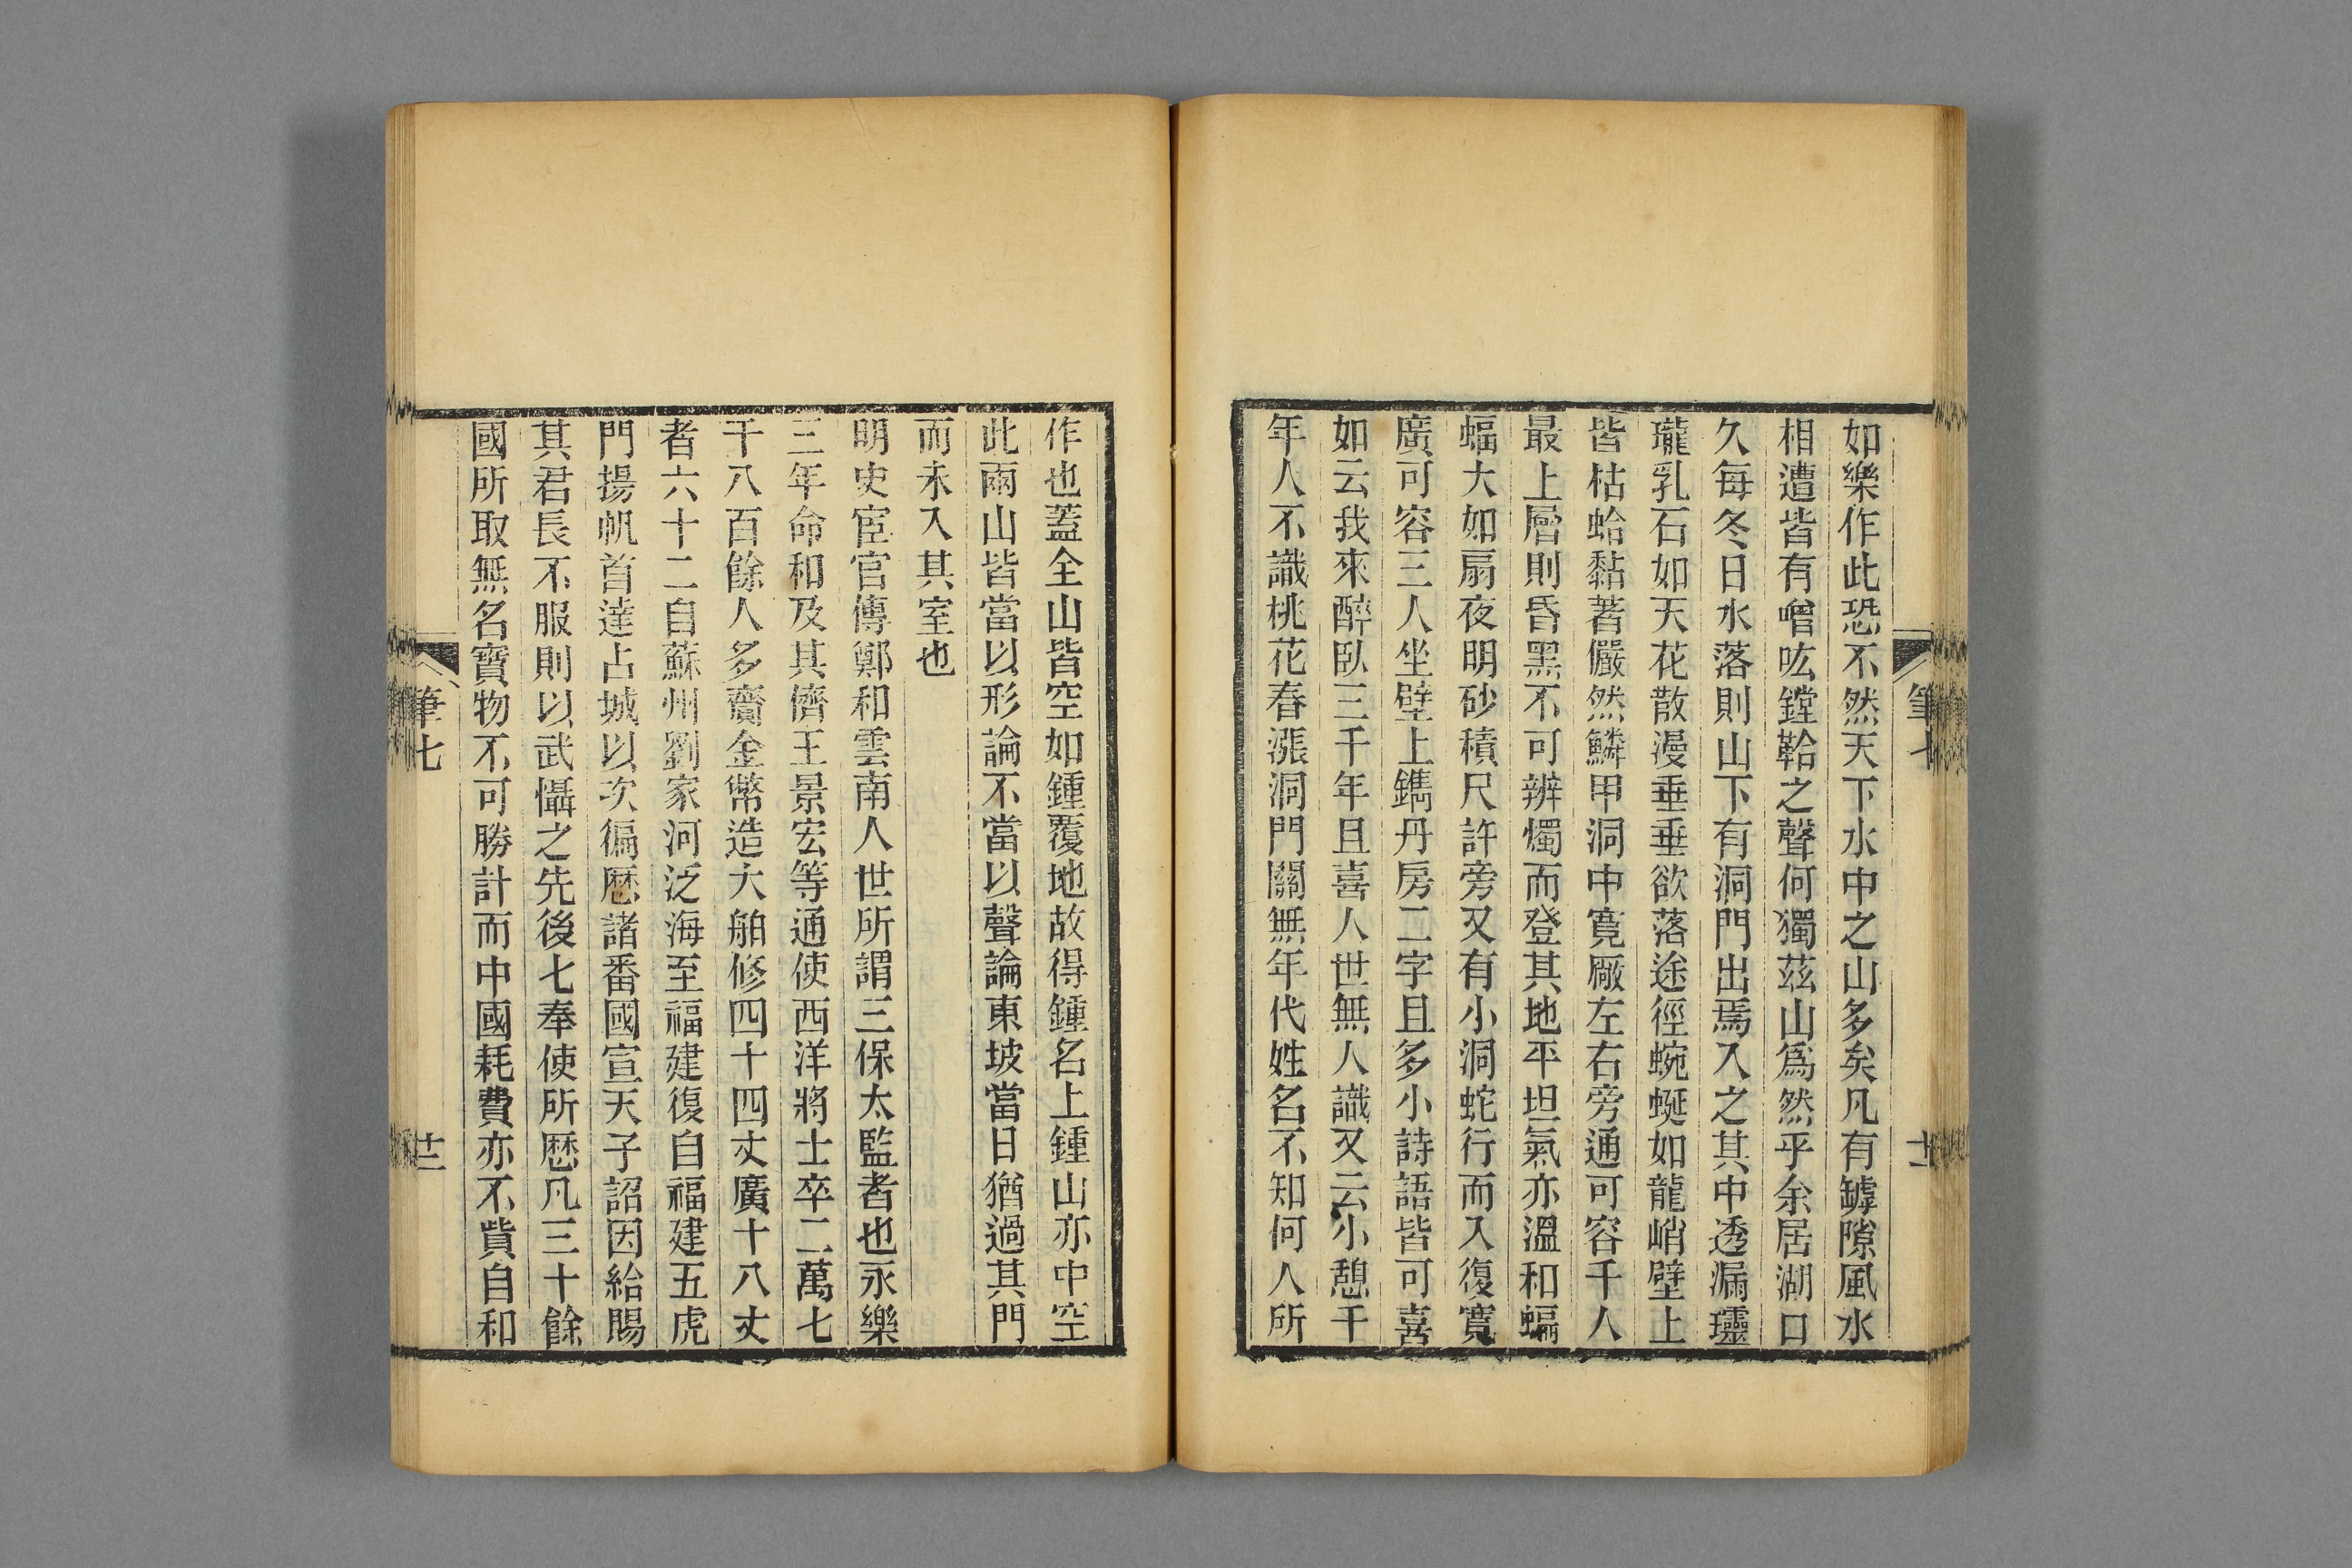 如樂作此恐不然天下水中之山多矣凡有罅隙風水
相遭皆有噌吰鏜鞈之聲何獨茲山爲然乎余居湖口
久每冬日水落則山下有洞門出焉入之其中透漏瓏
瓏乳石如天花散漫垂垂欲落途徑蜿蜒如龍峭壁上
皆枯蛤黏著儼然鱗甲洞中寛厰左右旁通可容千人
最上層則昏黑不可辨燭而登其地平坦氣亦溫和蝙
蝠大如扇夜明砂積尺許旁又有小洞蛇行而入復寛
廣可容三人坐壁上鐫丹房二字且多小詩語皆可喜
如云我來醉臥三千年且喜人世無人識又云小憩千
年人不識桃花春漲洞門關無年代姓名不知何人所
筆七
作也蓋全山皆空如鍾覆地故得鍾名上鍾山亦中空
此兩山皆當以形論不當以聲論東坡當日猶過其門
而未入其室也
明史宦官傳鄭和雲南人世所謂三保太監者也永樂
三年命和及其儕王景宏等通使西洋將士卒二萬七
千八百餘人多齎金幣造大舶修四十四丈廣十八丈
者六十二自蘇州劉家河泛海至福建復自福建五虎
門揚帆首達占城以次徧厯諸番國宣天子詔因給賜
其君長不服則以武懾之先後七奉使所厯凡三十餘
國所取無名寶物不可勝計而中國耗費亦不貲自和
筆七